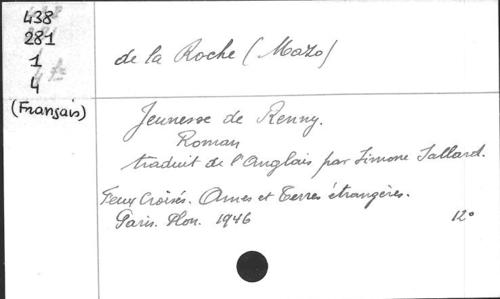 438
281
1
4
(Français)
de la Roche (Mazo)
Jeunesse de Renny.
Roman
traduit de l'Anglais par Simone Sallard.
Feux Croisés. Ames et Terres étrangères.
Paris. Plon. 1946 12°